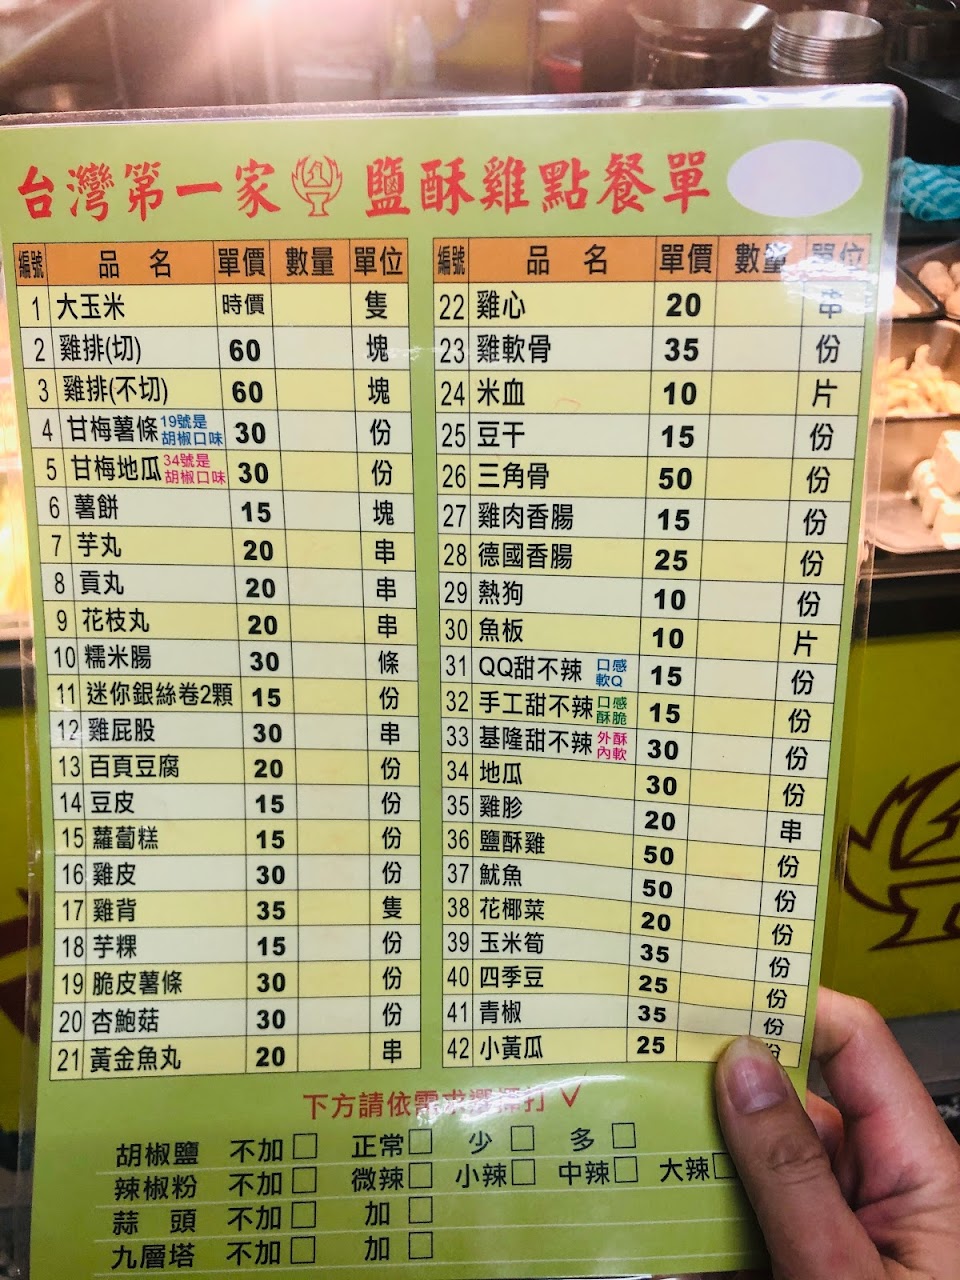 台灣第一家 鹽酥雞點餐單
編號 品名 單價 數量 單位
1 大玉米 時價 隻
2 雞排(切) 60 塊
3 雞排(不切) 60 塊
4 甘梅薯條 19號是胡椒口味 30 份
5 甘梅地瓜 34號是胡椒口味 30 份
6 薯餅 15 塊
7 芋丸 20 串
8 貢丸 20 串
9 花枝丸 20 串
10 糯米腸 30 條
11 迷你銀絲卷2顆 15 份
12 雞屁股 30 串
13 百頁豆腐 20 份
14 豆皮 15 份
15 蘿蔔糕 15 份
16 雞皮 30 份
17 雞背 35 隻
18 芋粿 15 份
19 脆皮薯條 30 份
20 杏鮑菇 30 份
21 黃金魚丸 20 串
編號 品名 單價 數量 單位
22 雞心 20 串
23 雞軟骨 35 份
24 米血 10 片
25 豆干 15 份
26 三角骨 50 份
27 雞肉香腸 15 份
28 德國香腸 25 份
29 熱狗 10 份
30 魚板 10 片
31 QQ甜不辣 口感軟Q 15 份
32 手工甜不辣 口感酥脆 15 份
33 基隆甜不辣 外酥內軟 30 份
34 地瓜 30 份
35 雞胗 20 串
36 鹽酥雞 50 份
37 魷魚 50 份
38 花椰菜 20 份
39 玉米筍 35 份
40 四季豆 25 份
41 青椒 35 份
42 小黃瓜 25 份
下方請依需求選擇打✓
胡椒鹽 不加□ 正常□ 少□ 多□
辣椒粉 不加□ 微辣□ 小辣□ 中辣□ 大辣□
蒜頭 不加□ 加□
九層塔 不加□ 加□